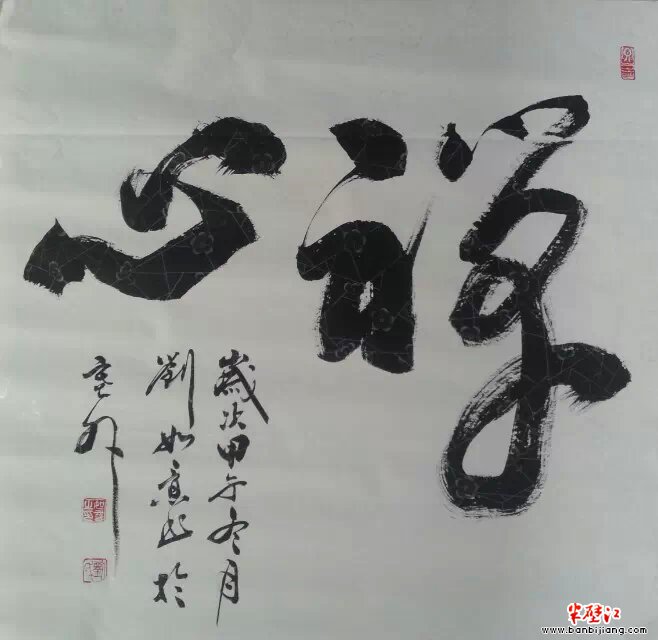 禅心
歲次甲午冬月
劉如意书於
半壁江
www.banbijiang.com